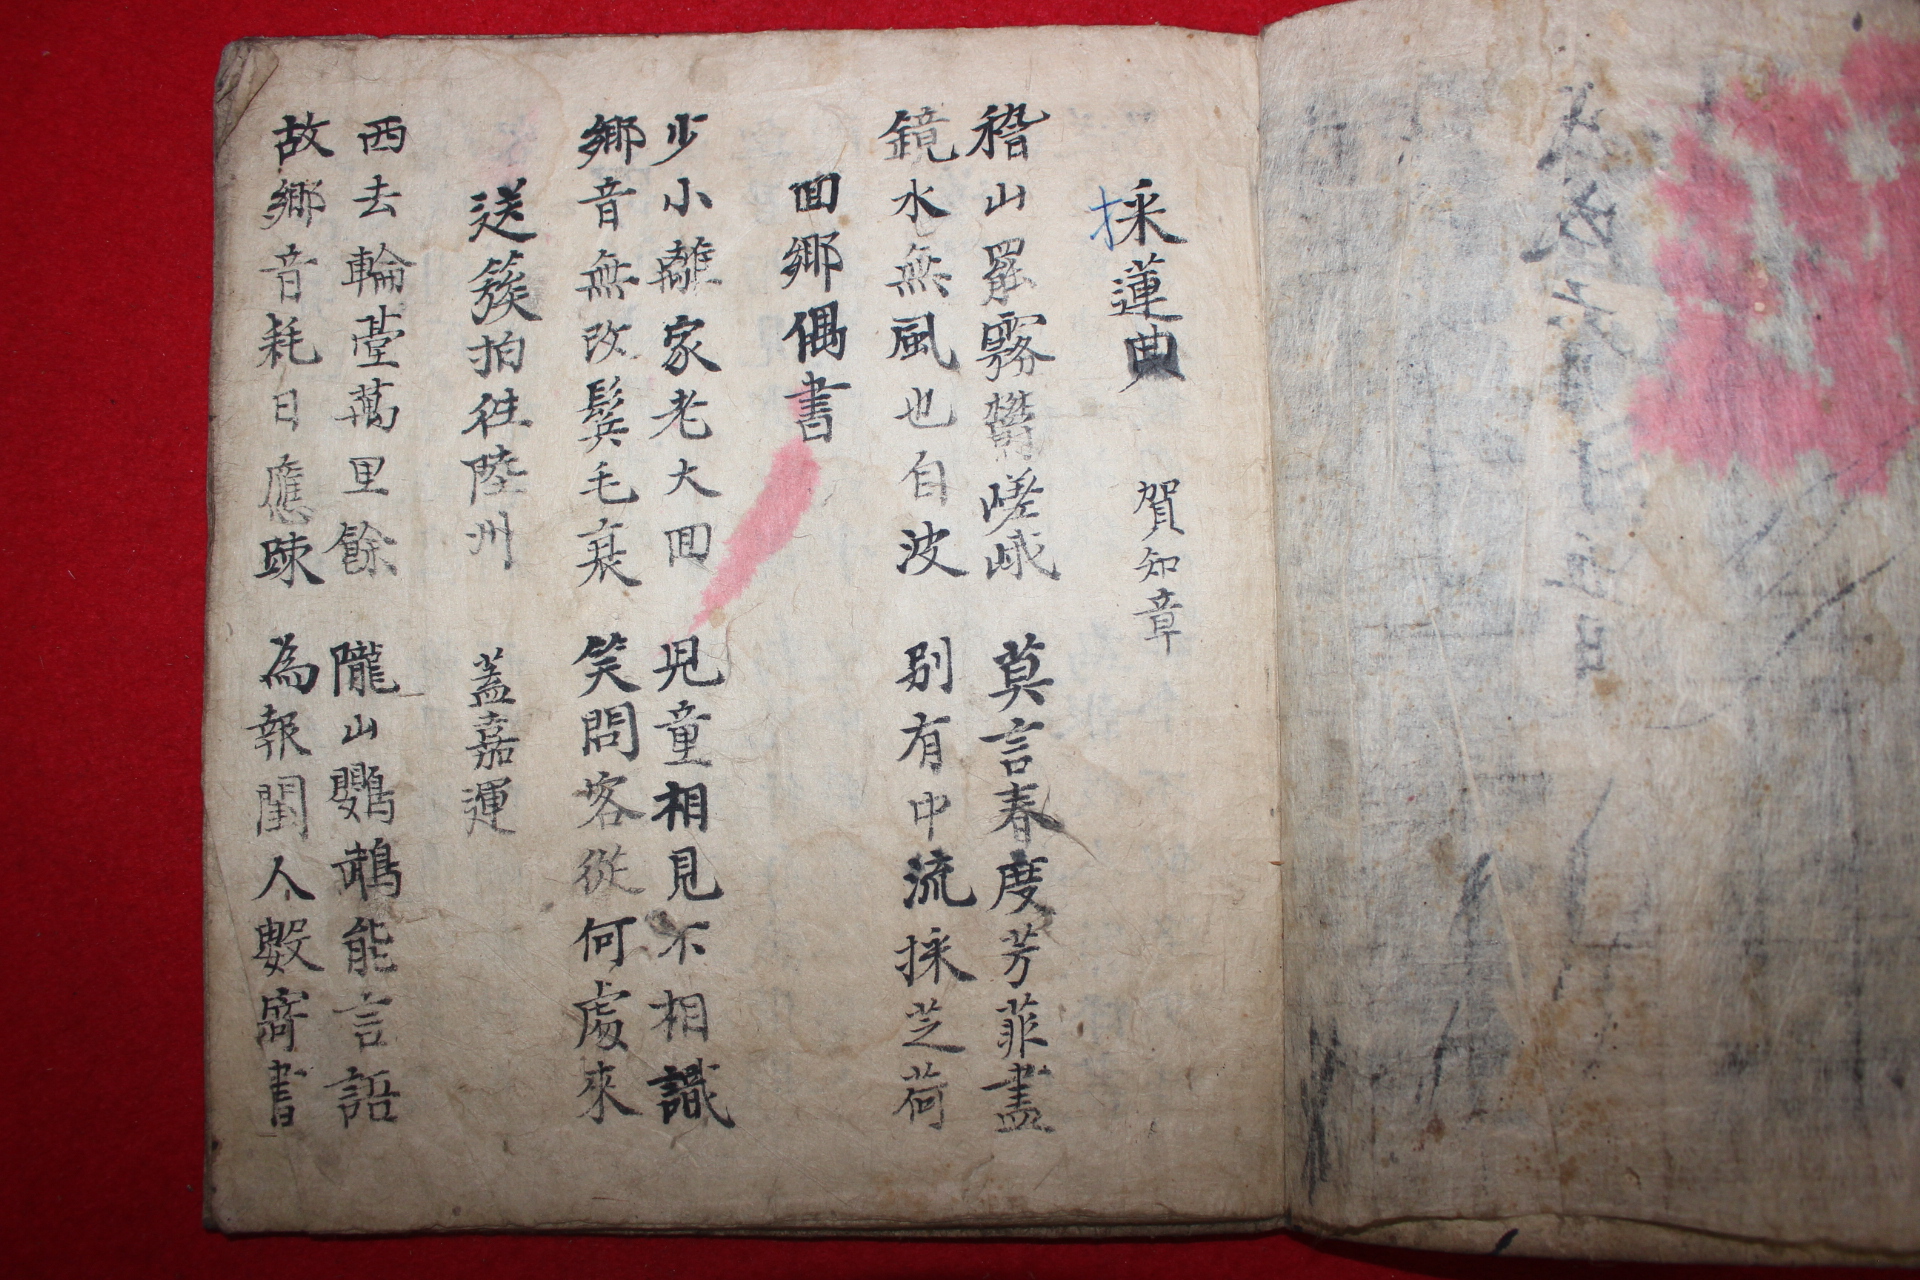 採蓮曲 賀知章
稽山罷霧鬱嵯峨 莫言春度芳菲盡
鏡水無風也自波 别有中流採芝荷
回鄉偶書
少小離家老大回 児童相見不相識
鄉音無改鬂毛衰 笑問客從何處來
送簇拍往陸州 蓋嘉運
西去輪臺萬里餘 隴山鸚鵡能言語
故鄉音耗日應踈 為報閨人數寄書